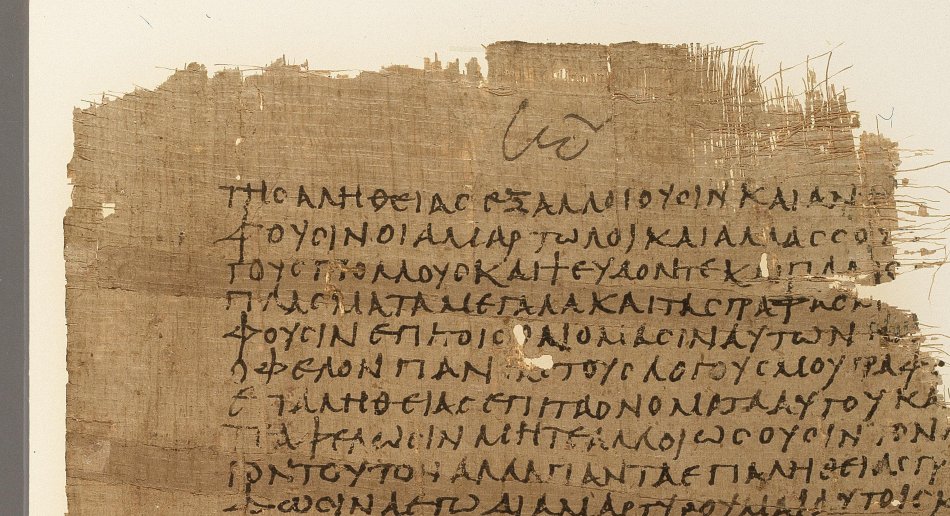 ΤΗϹΑΛΗΘΕΙΑϹΕΞΑΛΛΟΙΟΥϹΙΝΚΑΙΑΝ
ΦΟΥϹΙΝΟΙΑΜΑΡΤΩΛΟΙΚΑΙΑΛΛΑϹϹΟΥ
ΤΟΥϹΠΟΛΛΟΥϹΚΑΙΨΕΥΔΟΝΤΕΚΑΙΠΛΑϹ
ΠΛΑϹΜΑΤΑΜΕΓΑΛΑΚΑΙΤΑϹΓΡΑΦΑϹ
ΦΟΥϹΙΝΕΠΙΤΟΙϹΟΝΟΜΑϹΙΝΑΥΤΩΝ
ΟΦΕΛΟΝΠΑΝΤΑϹΤΟΥϹΛΟΓΟΥϹΜΟΥΓΡΑΦ
ΕΠΑΛΗΘΕΙΑϹΕΠΙΤΑΟΝΟΜΑΤΑΑΥΤΟΥΚΑ
ΑΦΕΛΩϹΙΝΜΗΤΕΑΛΛΟΙΩϹΟΥϹΙΝΤΩΝ
ΤΟΥΤΩΝΑΛΛΑΠΑΝΤΑΕΠΑΛΗΘΕΙΑϹΓΡ
ΦΩϹΙΝΑΕΓΩΔΙΑΜΑΡΤΥΡΟΥΜΑΙΑΥΤΟΙϹ